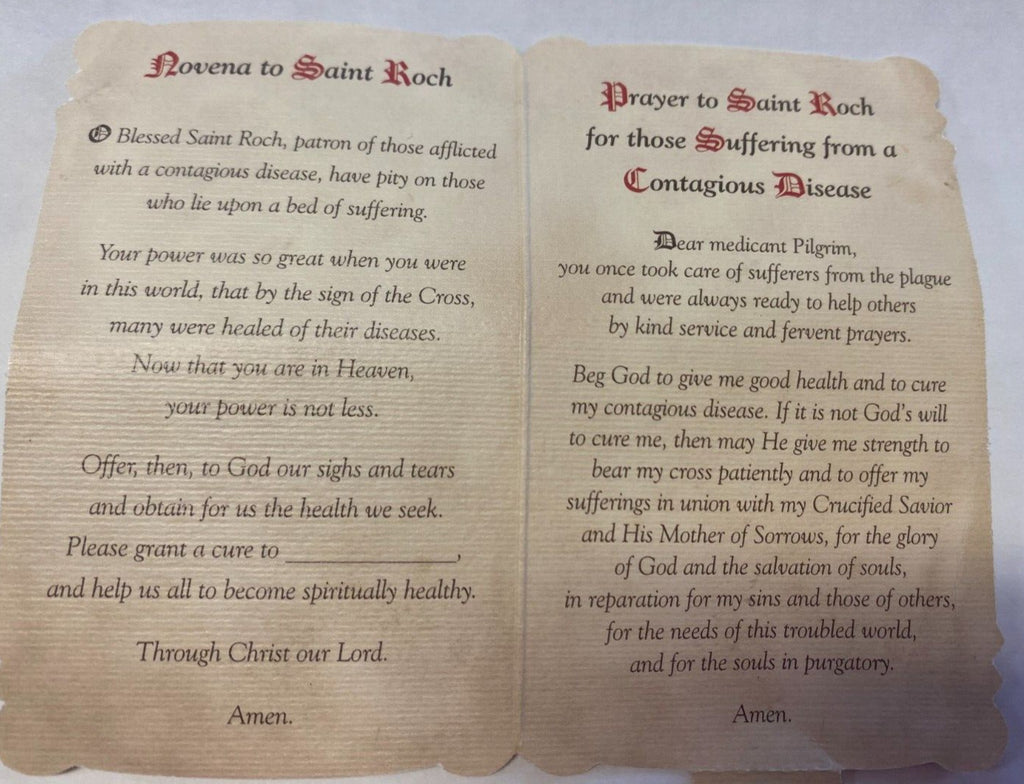 Novena to Saint Roch
O Blessed Saint Roch, patron of those afflicted
with a contagious disease, have pity on those
who lie upon a bed of suffering.
Your power was so great when you were
in this world, that by the sign of the Cross,
many were healed of their diseases.
Now that you are in Heaven,
your power is not less.
Offer, then, to God our sighs and tears
and obtain for us the health we seek.
Please grant a cure to _______________,
and help us all to become spiritually healthy.
Through Christ our Lord.
Amen.
Prayer to Saint Roch
for those Suffering from a
Contagious Disease
Dear medicant Pilgrim,
you once took care of sufferers from the plague
and were always ready to help others
by kind service and fervent prayers.
Beg God to give me good health and to cure
my contagious disease. If it is not God's will
to cure me, then may He give me strength to
bear my cross patiently and to offer my
sufferings in union with my Crucified Savior
and His Mother of Sorrows, for the glory
of God and the salvation of souls,
in reparation for my sins and those of others,
for the needs of this troubled world,
and for the souls in purgatory.
Amen.